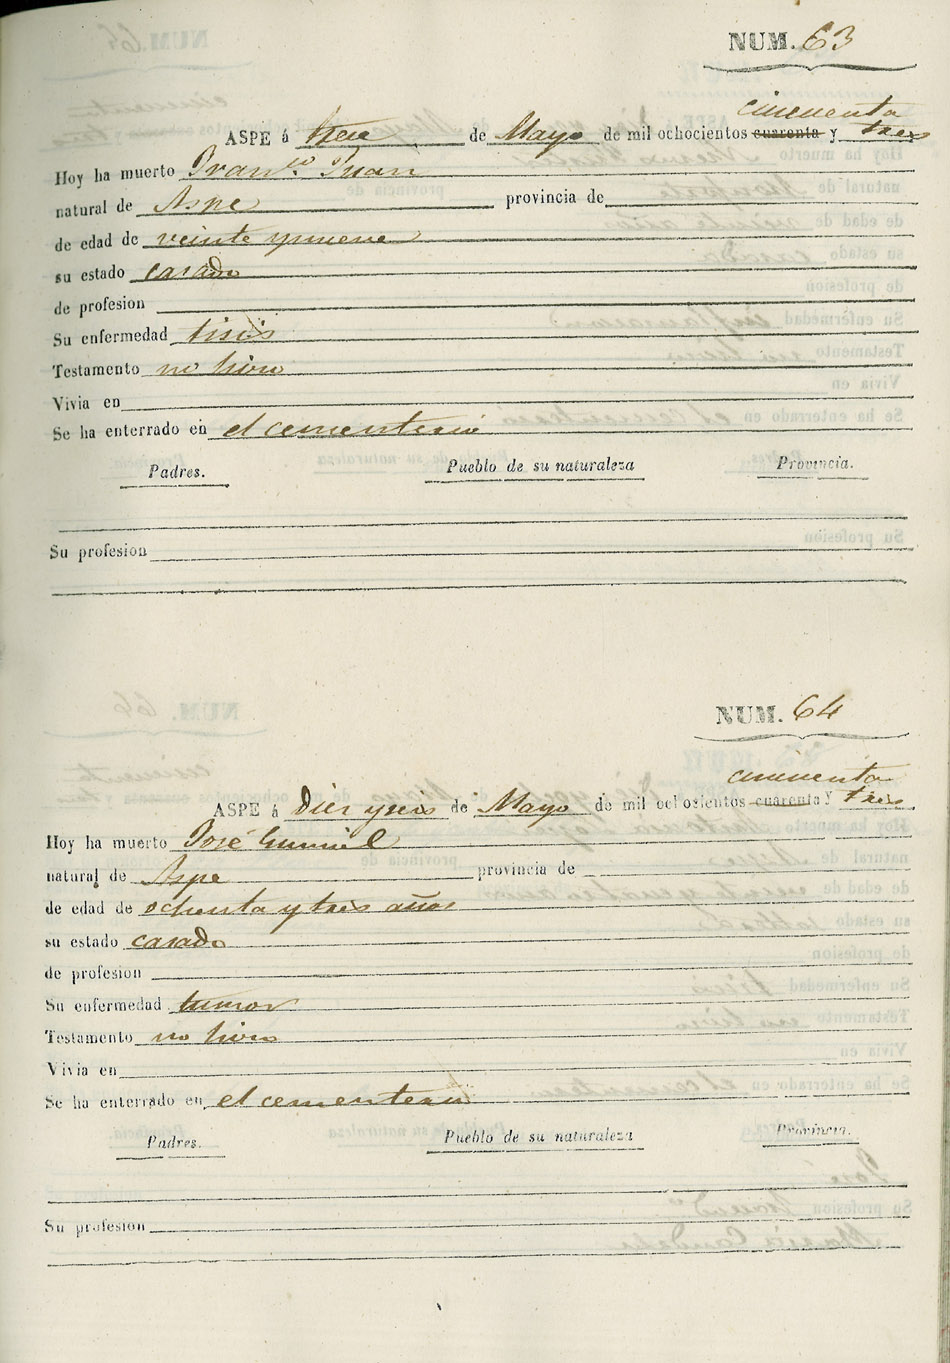 NUM. 63
cincuenta
ASPE á trece de Mayo de mil ochocientos cuarenta y tres
Hoy ha muerto Fran.co Juan
natural de Aspe provincia de
de edad de veinte y nueve
su estado casado
de profesion
Su enfermedad tisis
Testamento no hizo
Vivia en
Se ha enterrado en el cementerio
Padres. Pueblo de su naturaleza Provincia.
Su profesion
NUM. 64
cincuenta
ASPE á Diez y seis de Mayo de mil ochosientos cuarenta y tres
Hoy ha muerto José Gumiel
natural de Aspe provincia de
de edad de ochenta y tres años
su estado casado
de profesion
Su enfermedad tumor
Testamento no hizo
Vivia en
Se ha enterrado en el cementerio
Padres. Pueblo de su naturaleza Provincia.
Su profesion